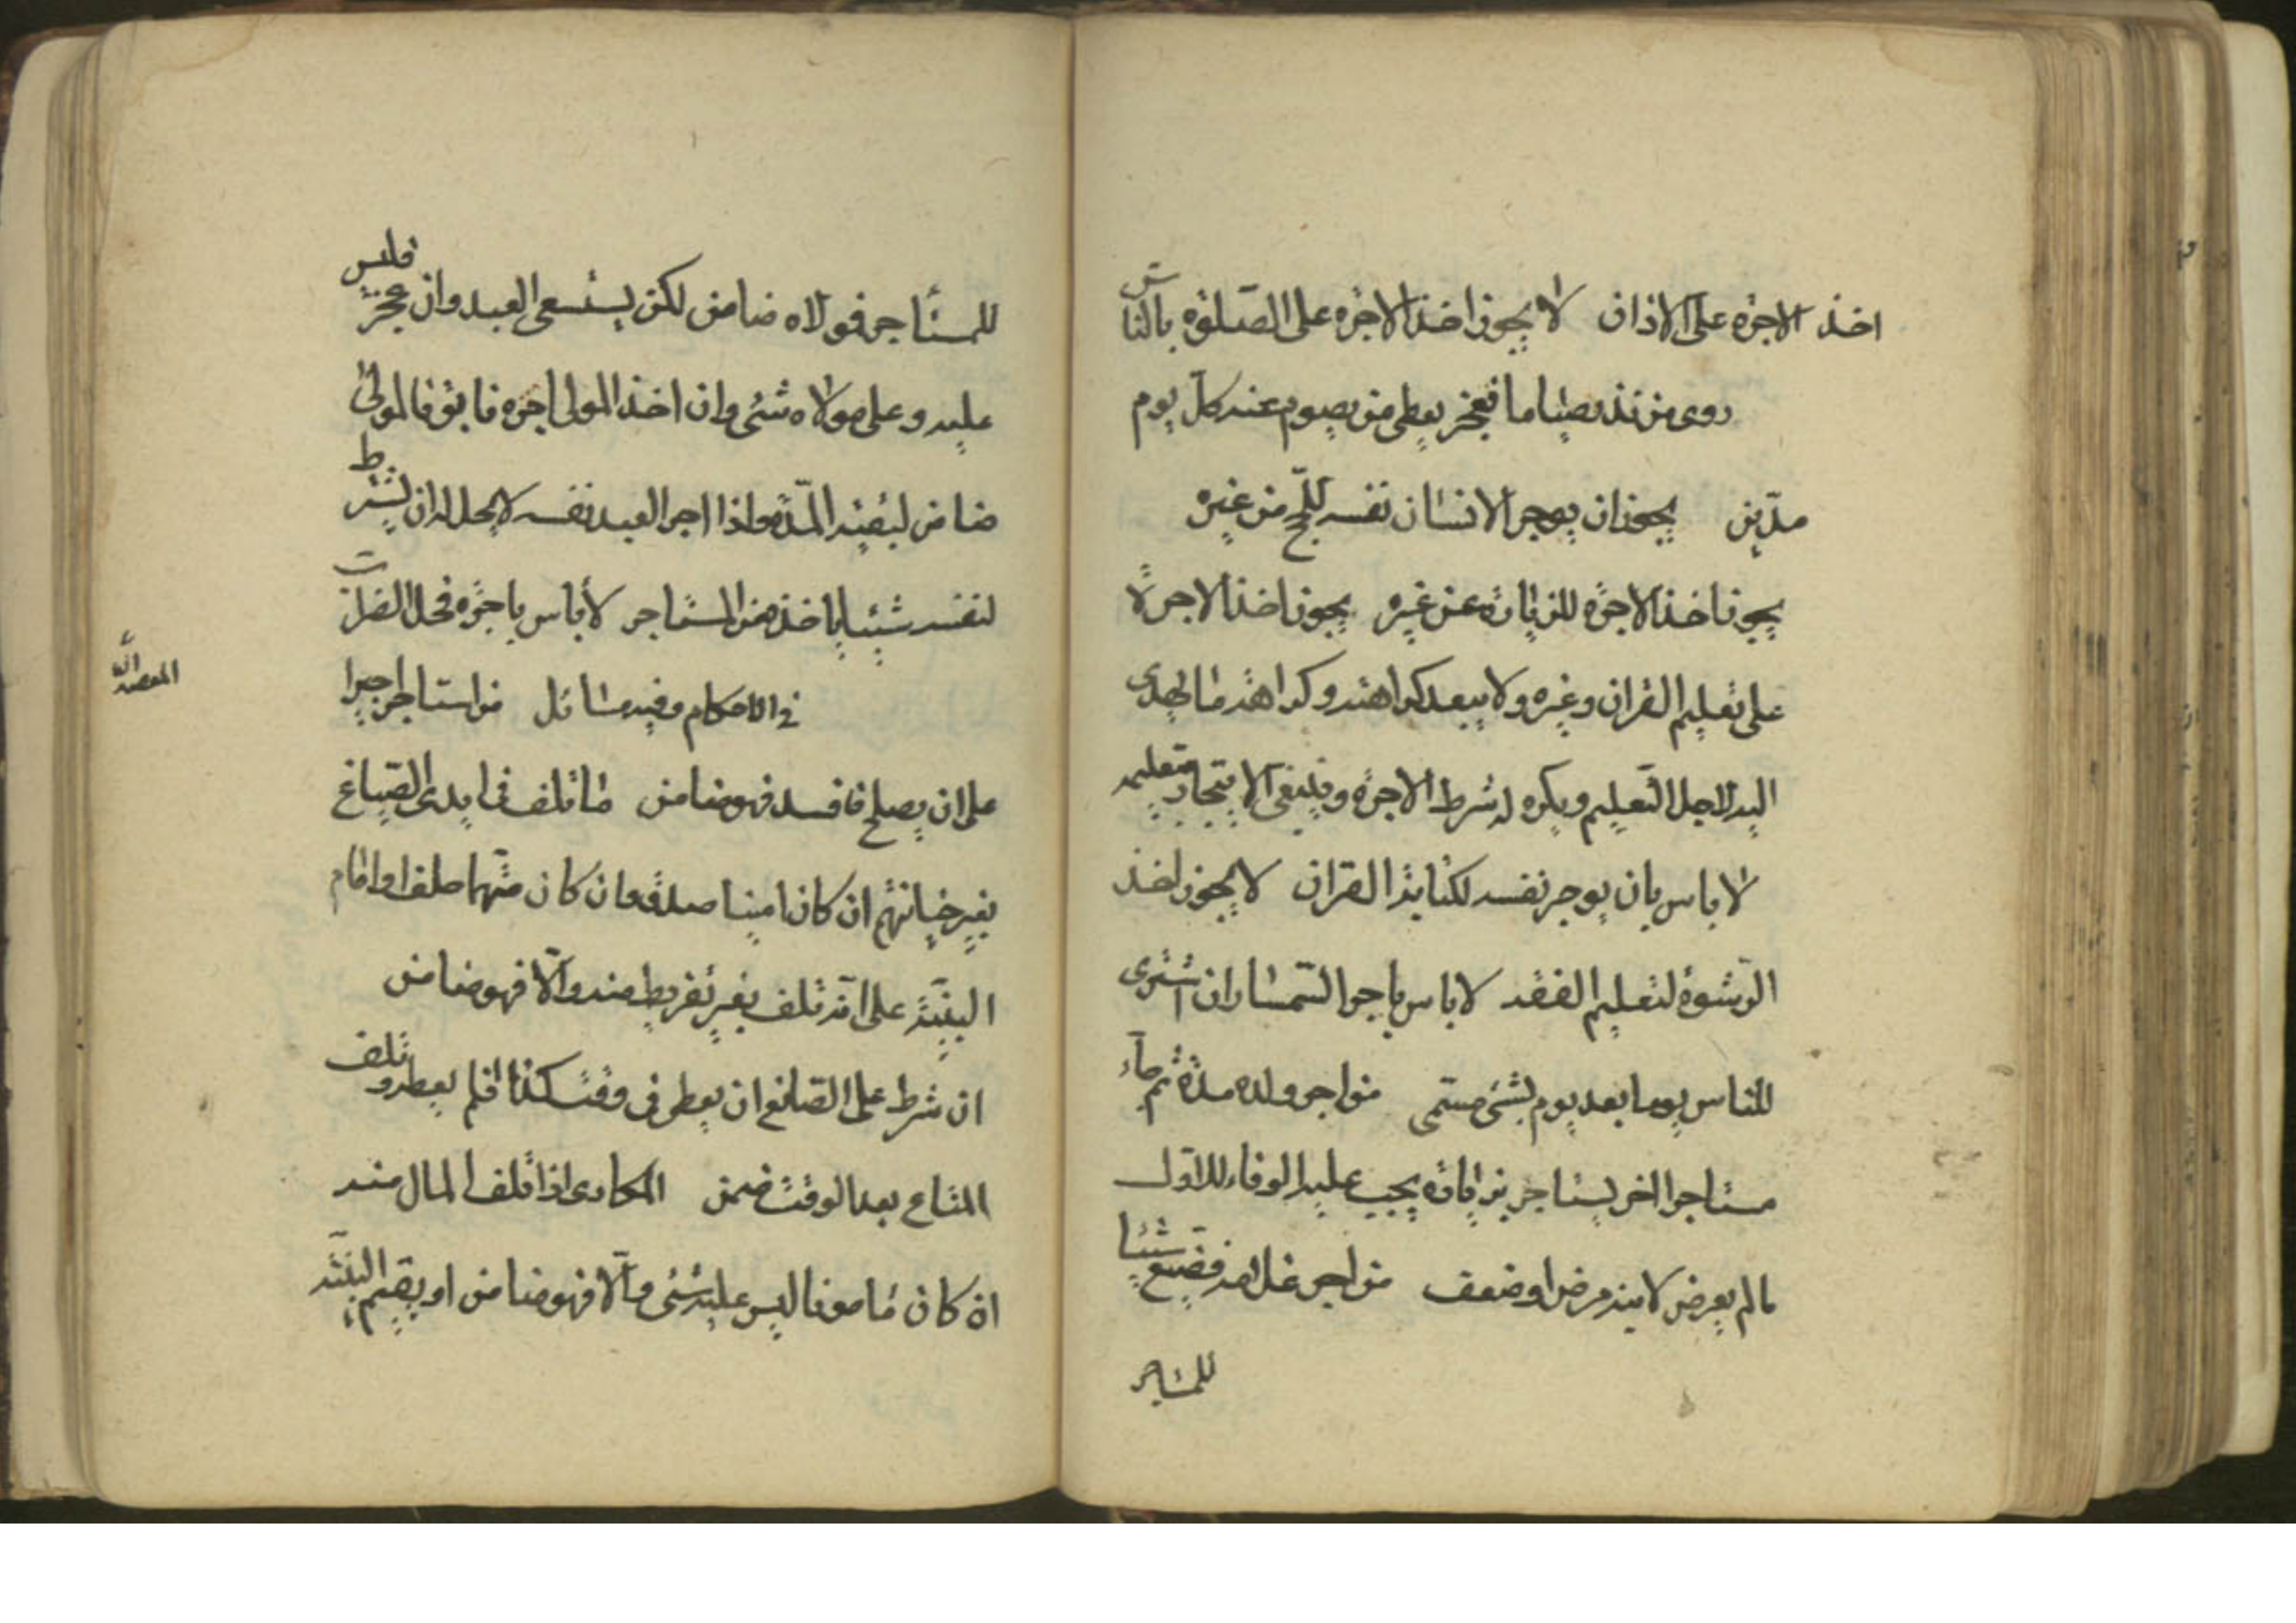 اخذ الاجرة على الاذان لا يجوز اخذ الاجرة على الصلوة بالناس
روى من نذر صياما فعجز يعطى من يصوم عنه كل يوم
مدين يجوز ان يوجر الانسان نفسه للحج من غيره
يجوز اخذ الاجرة للزيارة عن غيره يجوز اخذ الاجرة
على تعليم القران وغيره ولا يبعد كراهته وكراهة ما يهدى
اليه لاجل التعليم ويكره له شرط الاجرة وينبغى
لا باس بان يوجر نفسه لكتابة القران لا يجوز اخذ
الرشوة لتعليم الفقه لا باس باجر السمسار ان اشترى
للناس يوما بعد يوم بشئ مسمى من اجر ولده مدة ثم جاء
مستاجر اخر ليستاجر بزيادة يجب عليه الوفاء للاول
مالم يعرض لابنه مرض او ضعف من اجر غلامه فضيع شيئا
للمستاجر
للمستاجر فمولاه ضامن لكن يستسعى العبد وان عجز فليس
عليه وعلى مولاه شئ وان اخذ المولى اجره فابق فالمولى
ضامن لبقية المدة واذا اجر العبد نفسه لا يحل له ان يشترط
لنفسه شيئا ياخذه من المستاجر لا باس باجرة فحل الضراب
فى الاحكام وفيه مسائل من استاجر اجيرا
على ان يصلح فافسد فهو ضامن ما تلف فى ايدى الصباغ
بغير خيانتهم ان كان امينا صدق وان كان متهما حلف او اقام
البينة على انه تلف بغير تفريط منه والا فهو ضامن
ان شرط على الصانع ان يعطى فى وقت كذا فلم يعطه وتلف
المتاع بعد الوقت ضمن المكارى اذا تلف المال منه
ان كان مامونا ليس عليه شئ والا فهو ضامن او يقيم البينة